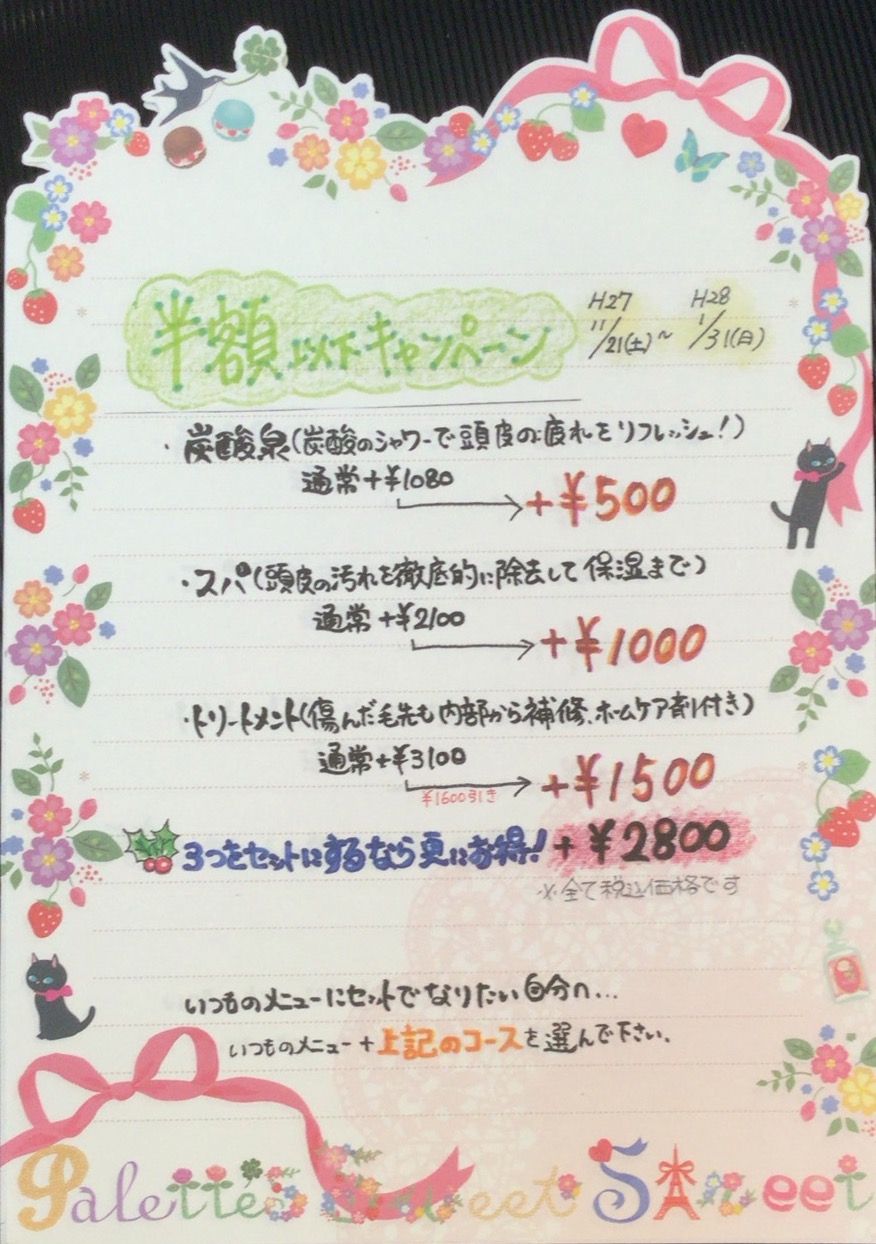 半額以下キャンペーン
H27 11/21(土)~ H28 1/31(日)
・炭酸泉(炭酸のシャワーで頭皮の疲れをリフレッシュ!)
通常+¥1080
+¥500
・スパ(頭皮の汚れを徹底的に除去して保湿まで)
通常+¥2100
+¥1000
・トリートメント(傷んだ毛先も内部から補修、ホームケア剤付き)
通常+¥3100
¥1600引き
+¥1500
3つをセットにするなら更にお得! +¥2800
※全て税込価格です
いつものメニューにセットでなりたい自分へ...
いつものメニュー+上記のコースを選んで下さい。
Palette Sweet Street